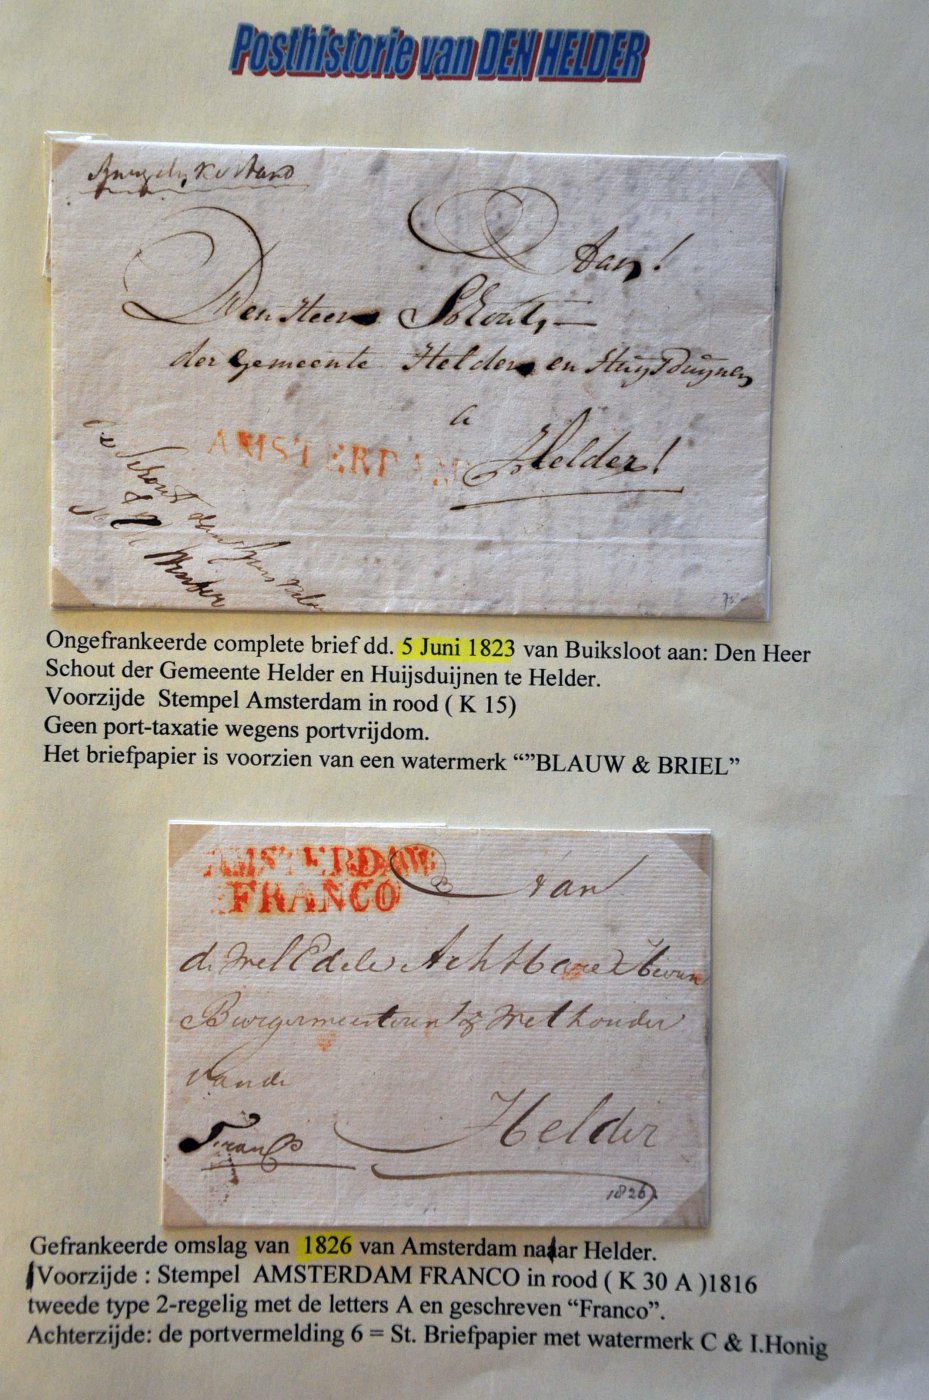 Posthistorie van DEN HELDER
Aan!
Den Heer Schout,
der Gemeente Helder en Huysduynen
a
AMSTERDAM
Helder!
de Schout
75
Ongefrankeerde complete brief dd. 5 Juni 1823 van Buiksloot aan: Den Heer
Schout der Gemeente Helder en Huijsduijnen te Helder.
Voorzijde Stempel Amsterdam in rood ( K 15)
Geen port-taxatie wegens portvrijdom.
Het briefpapier is voorzien van een watermerk “”BLAUW & BRIEL”
AMSTERDAM
FRANCO
Aan
de Wel Edele Achtbare Heeren
Burgermeesteren & Wethouder
van de
Helder
Franco
1826
Gefrankeerde omslag van 1826 van Amsterdam naar Helder.
Voorzijde : Stempel AMSTERDAM FRANCO in rood ( K 30 A )1816
tweede type 2-regelig met de letters A en geschreven “Franco”.
Achterzijde: de portvermelding 6 = St. Briefpapier met watermerk C & I.Honig